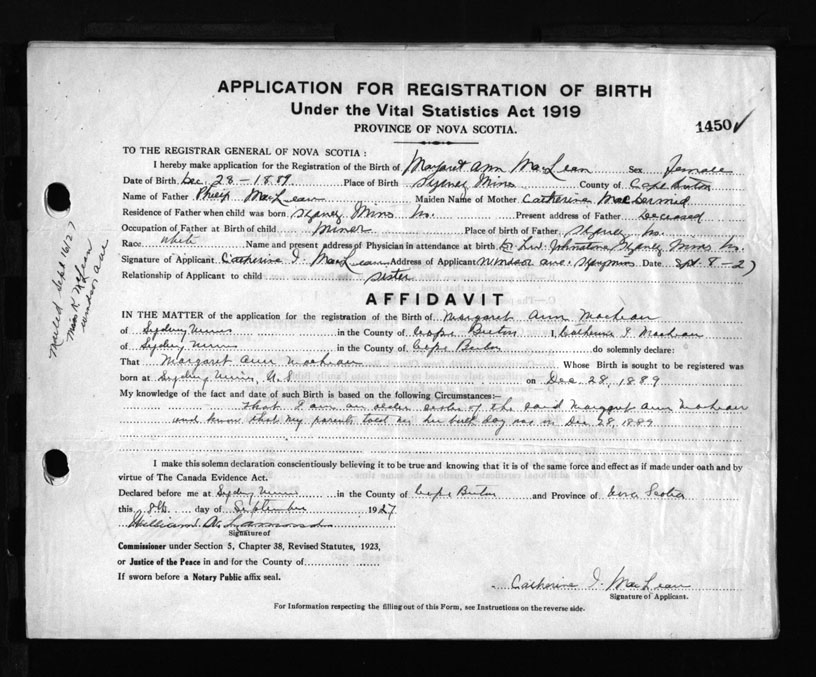 APPLICATION FOR REGISTRATION OF BIRTH
Under the Vital Statistics Act 1919
PROVINCE OF NOVA SCOTIA.
1450
TO THE REGISTRAR GENERAL OF NOVA SCOTIA :
I hereby make application for the Registration of the Birth of Margaret Ann MacLean Sex female
Date of Birth Dec. 28 - 1889 Place of Birth Sydney Mines County of Cape Breton
Name of Father Philip MacLean Maiden Name of Mother Catherine MacDermid
Residence of Father when child was born Sydney Mines Present address of Father Deceased
Occupation of Father at Birth of child Miner Place of birth of Father Sydney
Race White Name and present address of Physician in attendance at birth Dr. Johnstone Sydney Mines
Signature of Applicant Catherine I. MacLean Address of Applicant Windsor ave. Syd mines Date Sept 8 - 27
Relationship of Applicant to child sister
AFFIDAVIT
IN THE MATTER of the application for the registration of the Birth of Margaret Ann MacLean
of Sydney Mines in the County of Cape Breton I, Catherine I MacLean
of Sydney Mines in the County of Cape Breton do solemnly declare:
That Margaret Ann MacLean Whose Birth is sought to be registered was
born at Sydney Mines, N.S on Dec 28, 1889
My knowledge of the fact and date of such Birth is based on the following Circumstances:—
that I am an older sister of the said Margaret Ann MacLean
and know that my parents told me her birth day was on Dec 28, 1889
I make this solemn declaration conscientiously believing it to be true and knowing that it is of the same force and effect as if made under oath and by
virtue of The Canada Evidence Act.
Declared before me at Sydney Mines in the County of Cape Breton and Province of Nova Scotia
this 8th day of September 1927
William A.
Signature of
Commissioner under Section 5, Chapter 38, Revised Statutes, 1923,
or Justice of the Peace in and for the County of
If sworn before a Notary Public affix seal.
Catherine I. MacLean
Signature of Applicant.
For Information respecting the filling out of this Form, see Instructions on the reverse side.
Mailed Sept 16/27
Miss K McLean
Windsor Ave